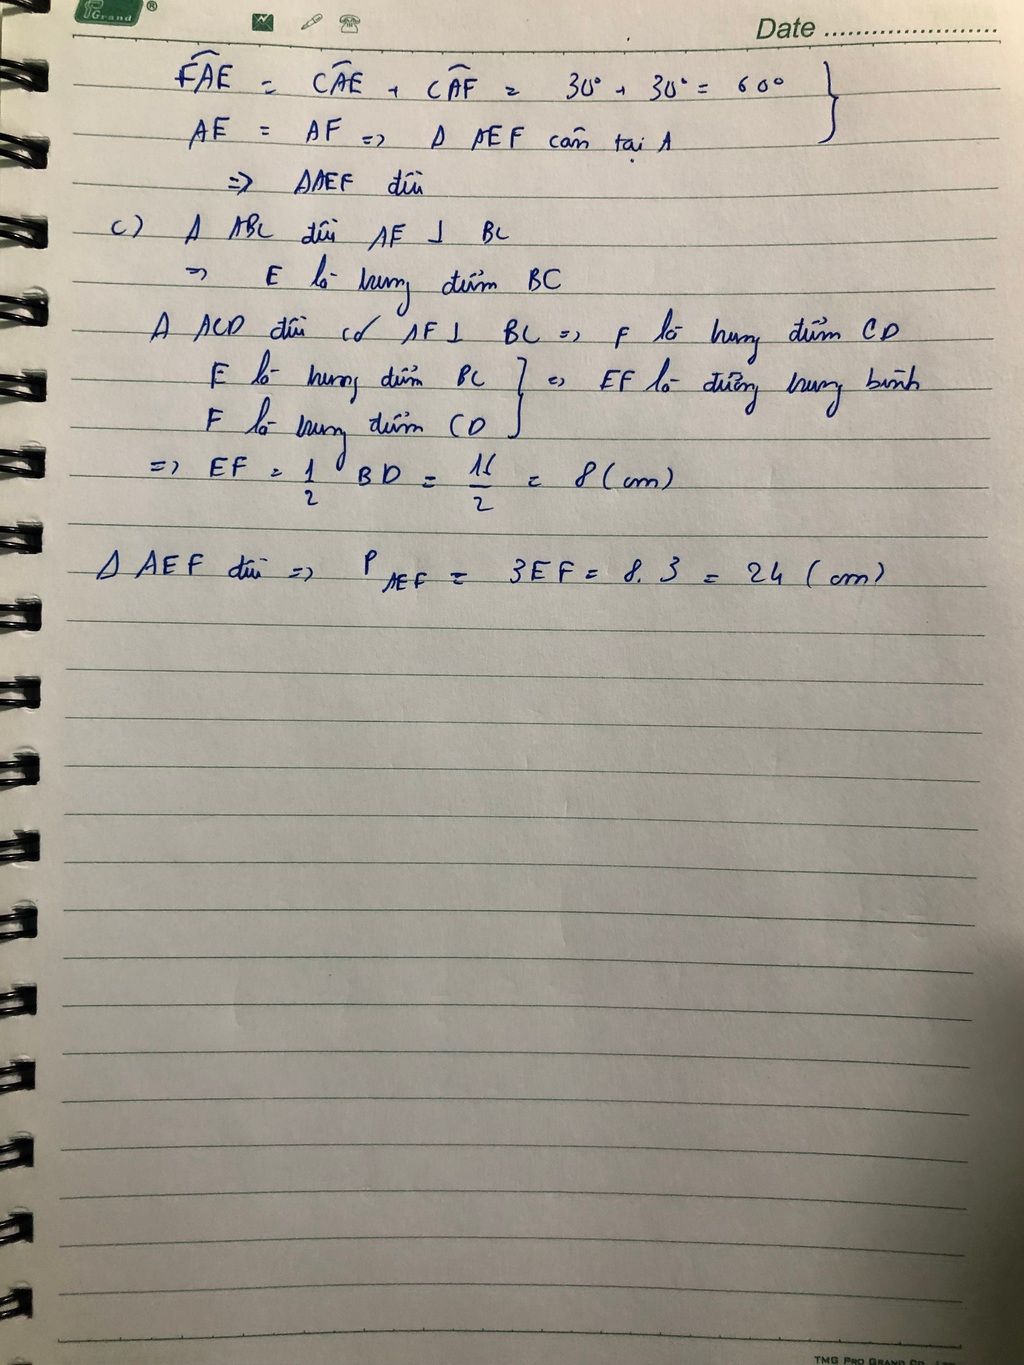 Grand ®
Date
FAE = CAE + CAF = 30° + 30° = 60°
AE = AF => Δ AEF cân tại A
=> ΔAEF đều
c) Δ ABC đều AE ⊥ BC
=> E là trung điểm BC
Δ ACD đều có AF ⊥ BC => F là trung điểm CD
E là trung điểm BC } => EF là đường trung bình
F là trung điểm CD
=> EF = 1/2 BD = 16/2 = 8 (cm)
Δ AEF đều => P AEF = 3EF = 8.3 = 24 (cm)
TMG PRO GRAND CO.